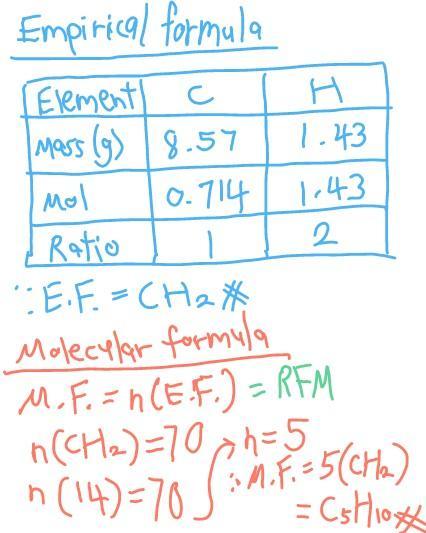 Empirical formula
Element C H
Mass (g) 8.57 1.43
Mol 0.714 1.43
Ratio 1 2
∵ E.F. = CH₂ #
Molecular formula
M.F. = n(E.F.) = RFM
n(CH₂) = 70
n(14) = 70
n = 5
∵ M.F. = 5(CH₂)
= C₅H₁₀ #